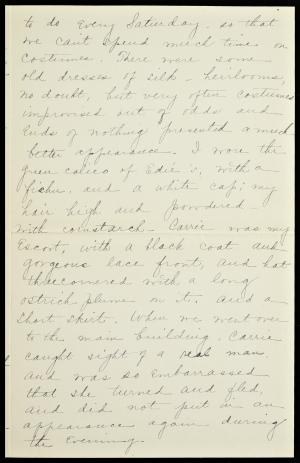 to do every Saturday. so that
we can't spend much time on
costumes. There were some
old dresses of silk - heirlooms,
no doubt, but very often costumes
improvised out of odds and
ends of nothing presented a much
better appearance. I wore the
green calico of Edie's, with a
fishu, and a white cap; my
hair high and powdered
with cornstarch. Carrie was my
escort, with a black coat and
gorgeous lace front, and hat
threecornered with a long
ostrich plume on it. and a
short skirt. When we went over
to the main building, Carrie
caught sight of a real man
and was so embarrassed
that she turned and fled,
and did not put in an
appearance again during
the evening.